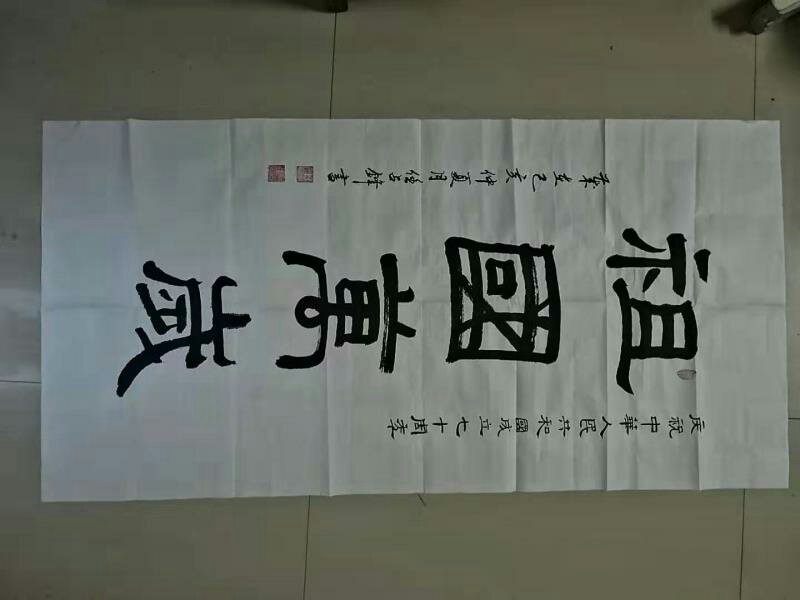 庆祝中華人民共和國成立七十周年
祖國萬歲
歲在己亥仲夏月徐占輝書